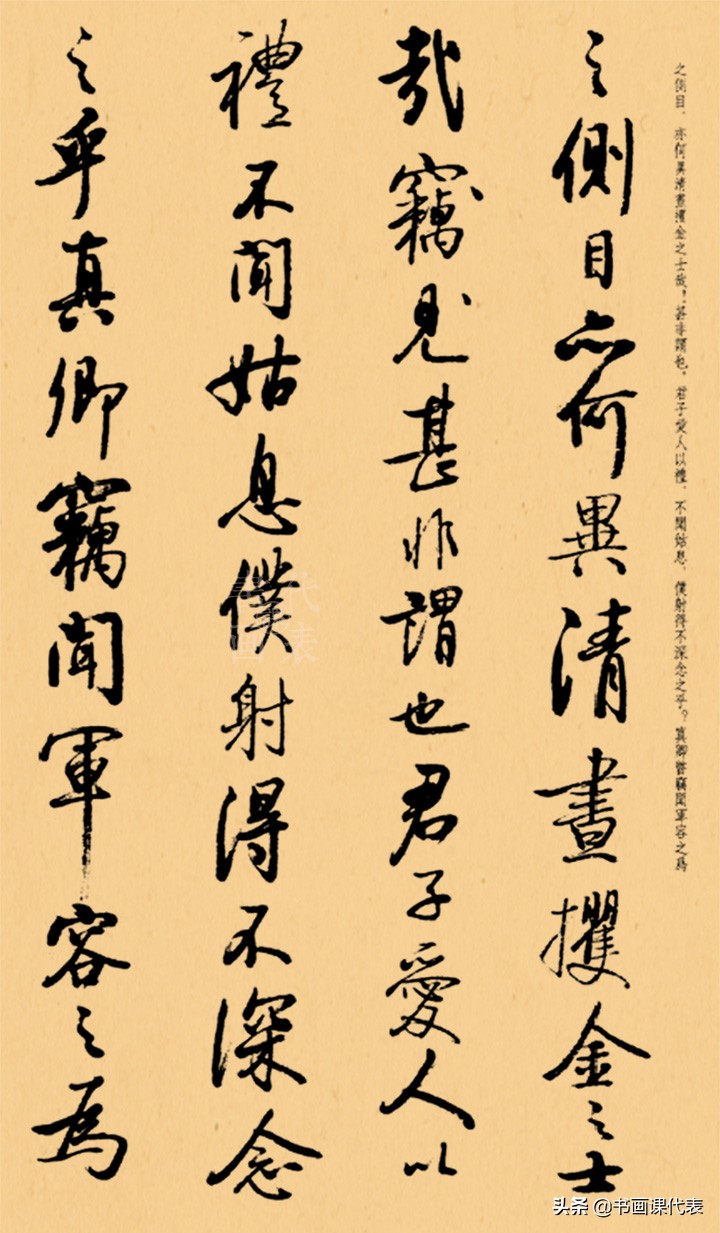 之側目，亦何異清晝攫金之士哉！甚非謂也。君子愛人以禮，不聞姑息，僕射得不深念之乎？真卿竊聞軍容之爲
之側目亦何異清晝攫金之士
哉竊見甚非謂也君子愛人以
禮不聞姑息僕射得不深念
之乎真卿竊聞軍容之爲
头条 @书画课代表